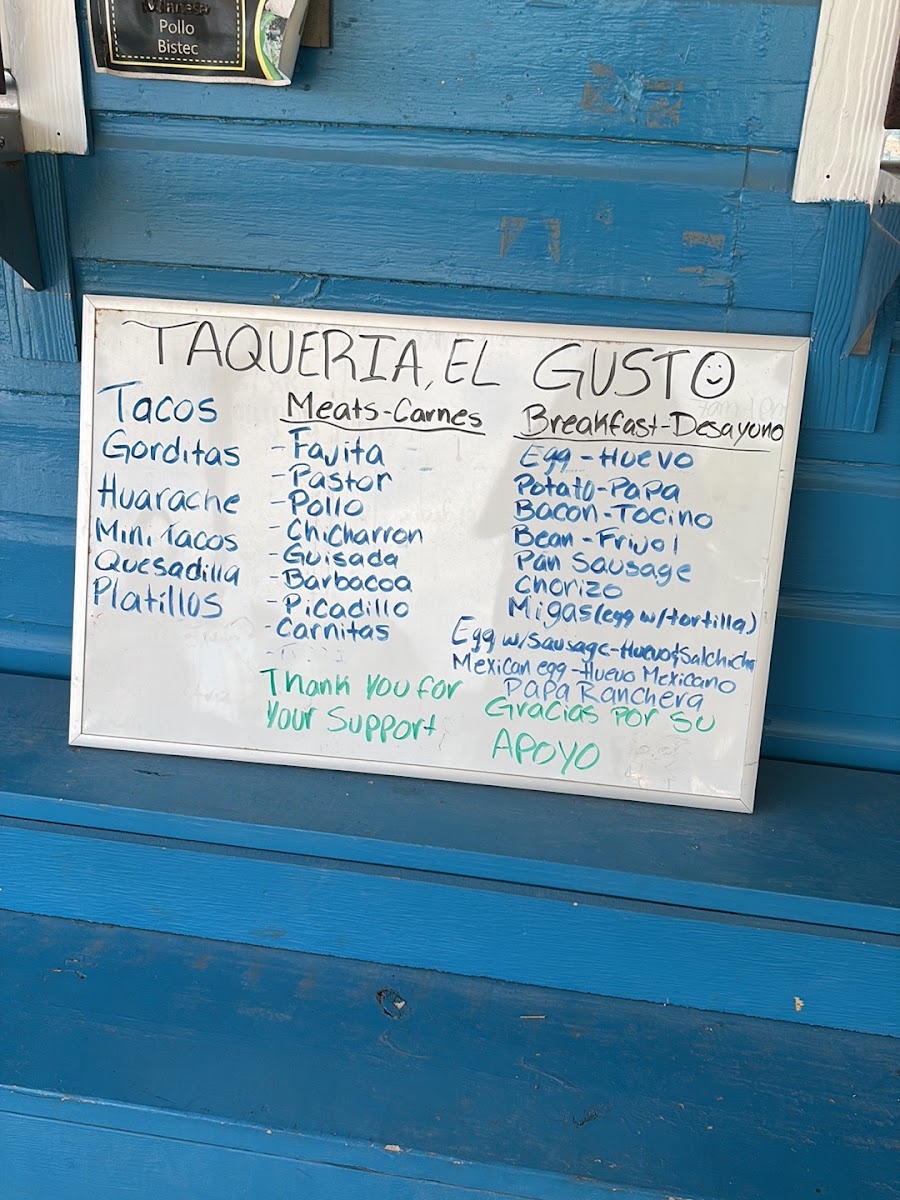 Pollo
Bistec
TAQUERIA, EL GUSTO
Tacos
Gorditas
Huarache
Mini Tacos
Quesadilla
Platillos
Meats-Carnes
-Fajita
-Pastor
-Pollo
-Chicharron
-Guisada
-Barbacoa
-Picadillo
-Carnitas
Thank you for
Your Support
Breakfast-Desayuno
Egg-Huevo
Potato-Papa
Bacon-Tocino
Bean-Frijol
Pan Sausage
Chorizo
Migas(egg w/tortilla)
Egg w/Sausage-Huevo+Salchicha
Mexican egg-Huevo Mexicano
Papa Ranchera
Gracias Por Su
APOYO